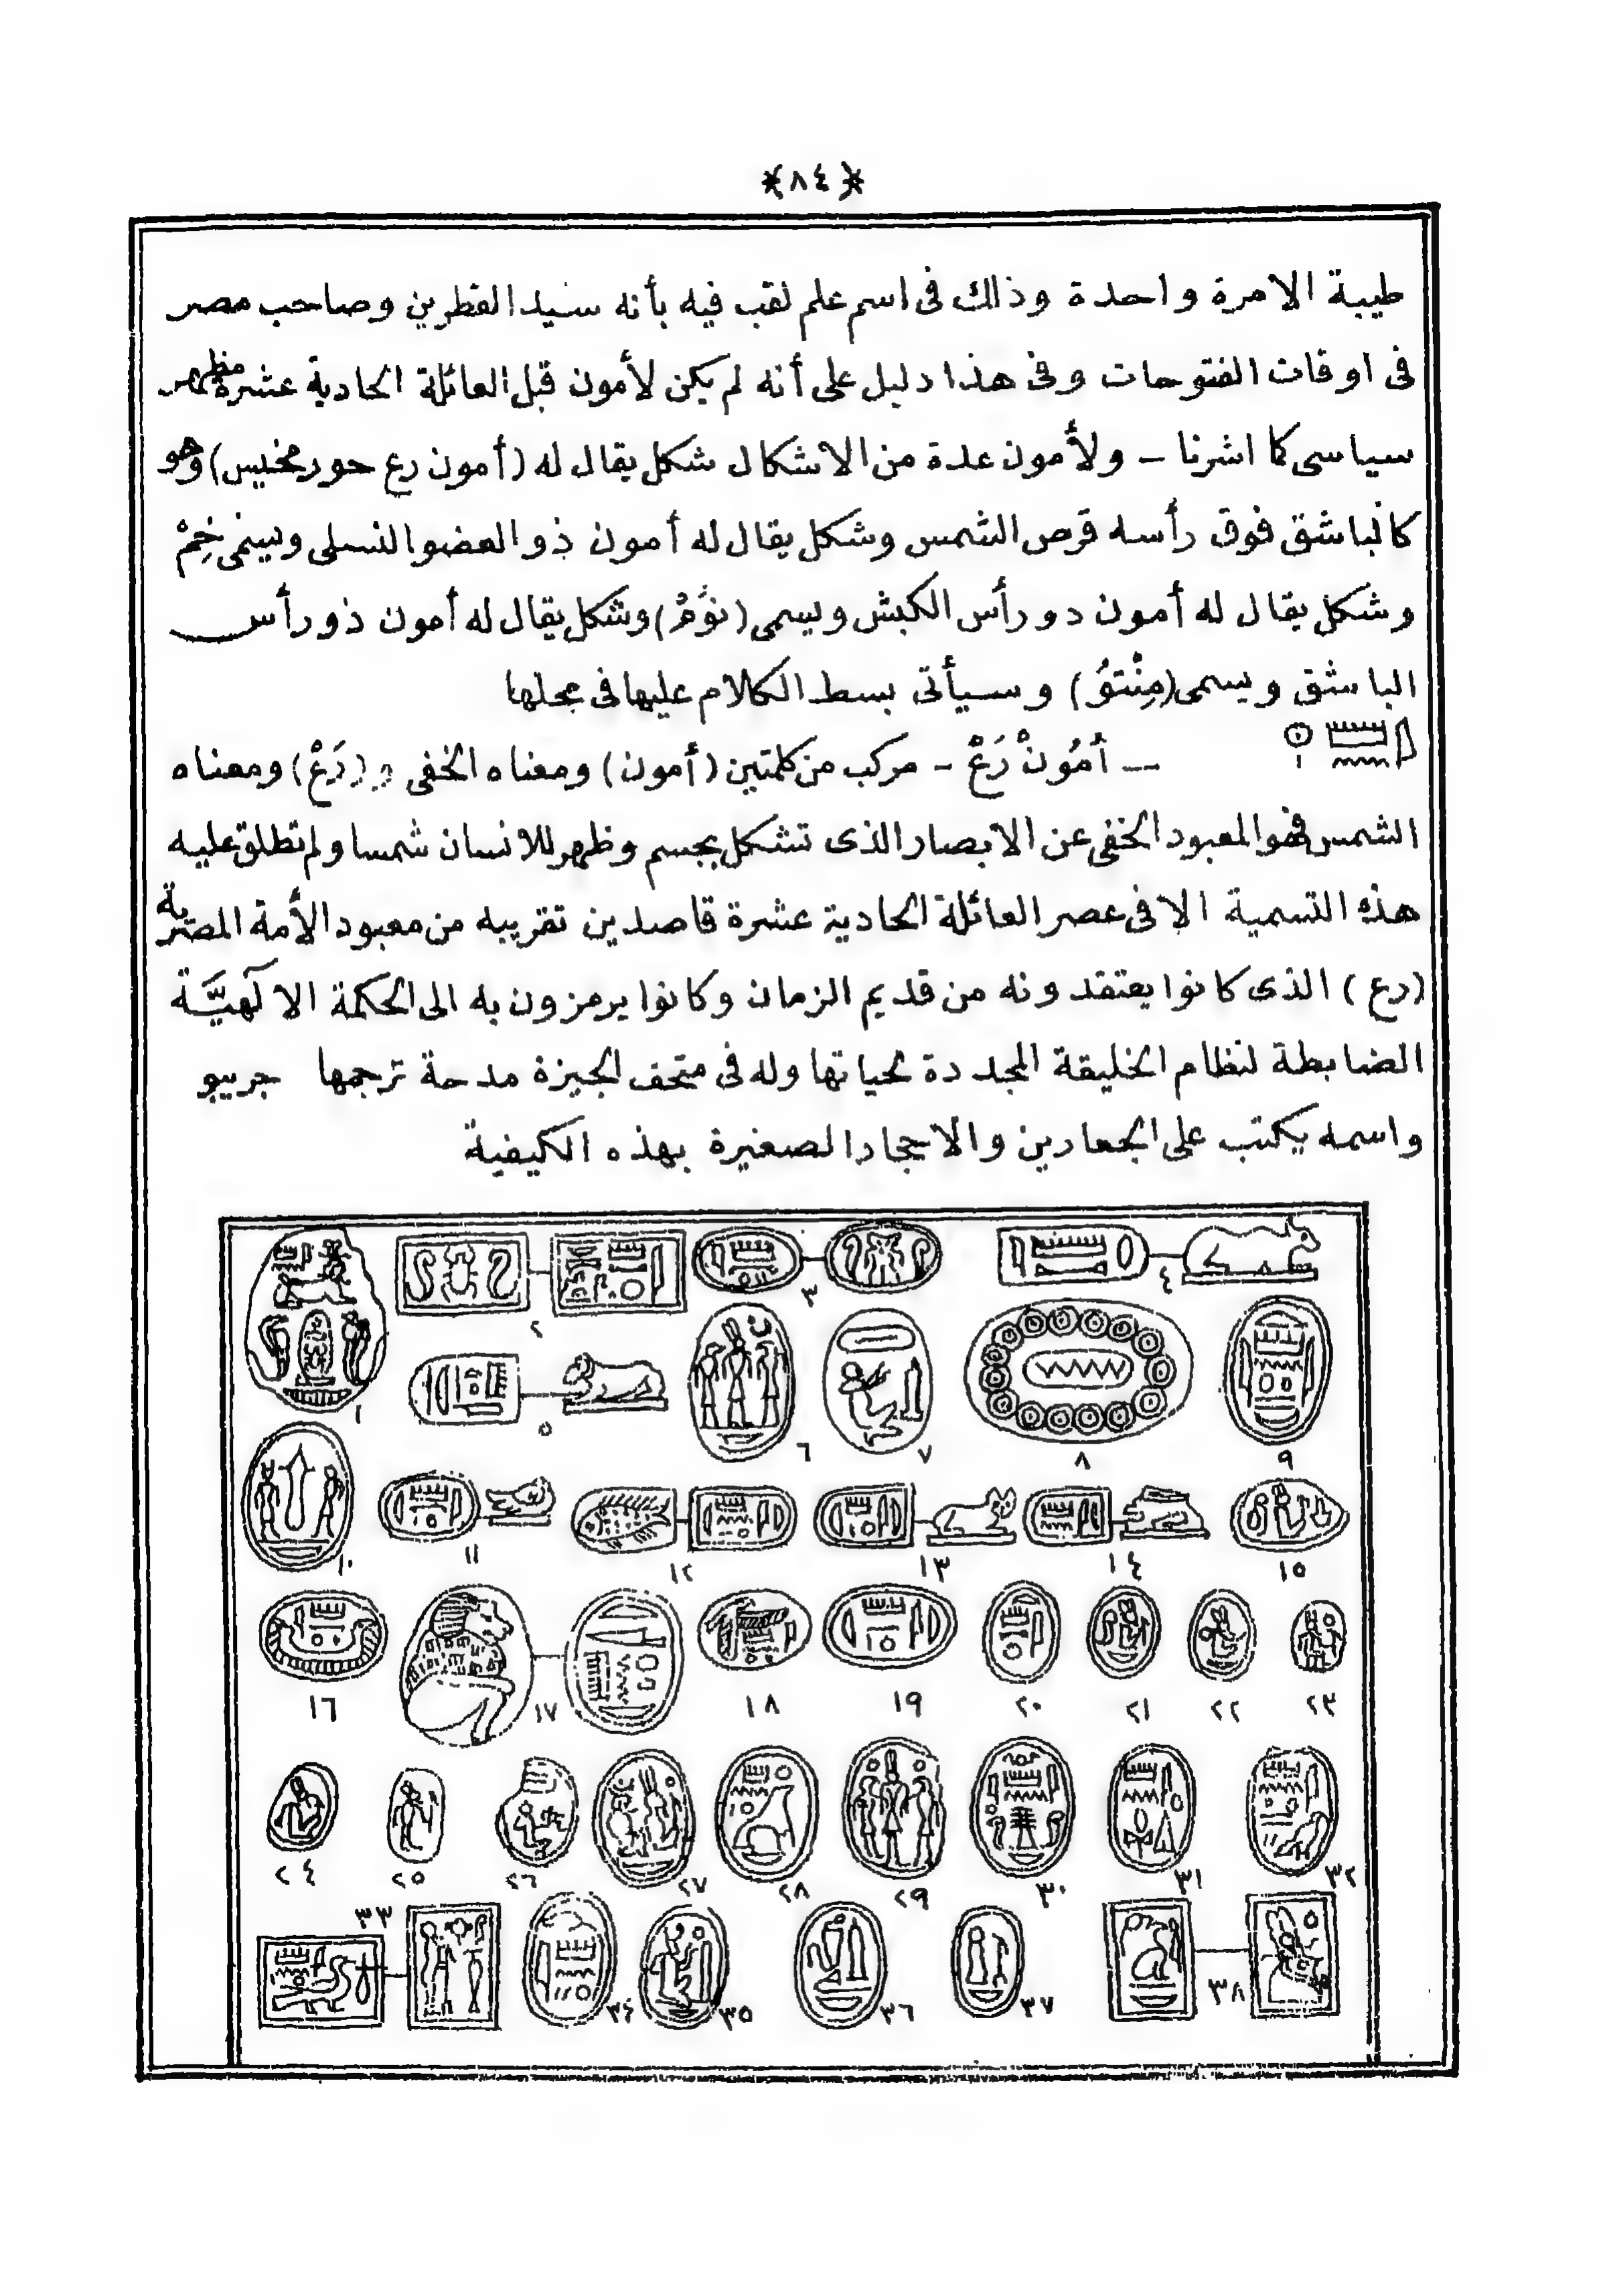 ٨٤
طيبة الا مرة واحدة وذلك فى اسم علم لقب فيه بأنه سيد القطرين وصاحب مصر
فى اوقات الفتوحات وفى هذا دليل على أنه لم يكن لأمون قبل العائلة الحادية عشرة مظهر
سياسى كما اشرنا – ولأمون عدة من الاشكال شكل يقال له (أمون رع حورمخيس) وهو
كالباشق فوق رأسه قرص الشمس وشكل يقال له أمون ذو العضو النسلى ويسمى خِمْ
وشكل يقال له أمون دو رأس الكبش ويسمى (نوُمْ) وشكل يقال له أمون ذو رأس
الباشق ويسمى (مِنْتوُ) وسيأتى بسط الكلام عليها فى محلها
— أمُونْ رَعْ – مركب من كلمتين (أمون) ومعناه الخفى و (رَعْ) ومعناه
الشمس فهو المعبود الخفى عن الابصار الذى تشكل بجسم وظهر للانسان شمسا ولم تطلق عليه
هذه التسمية الا فى عصر العائلة الحادية عشرة قاصدين تقريبه من معبود الأمة المصرية
(رع) الذى كانوا يعتقدونه من قديم الزمان وكانوا يرمزون به الى الحكمة الالٓهيَّة
الضابطة لنظام الخليقة المجددة لحياتها وله فى متحف الجيزة مدحة ترجمها جريبو
واسمه يكتب على الجعارين والاحجار الصغيرة بهذه الكيفية
١ ٢ ٣ ٤
٥ ٦ ٧ ٨ ٩
١٠ ١١ ١٢ ١٣ ١٤ ١٥
١٦ ١٧ ١٨ ١٩ ٢٠ ٢١ ٢٢ ٢٣
٢٤ ٢٥ ٢٦ ٢٧ ٢٨ ٢٩ ٣٠ ٣١ ٣٢
٣٣ ٣٤ ٣٥ ٣٦ ٣٧ ٣٨